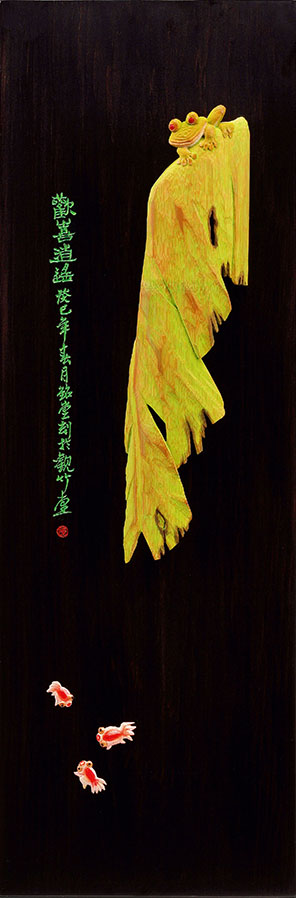 歡喜逍遙 癸巳年春月銘堂刻於觀竹臺